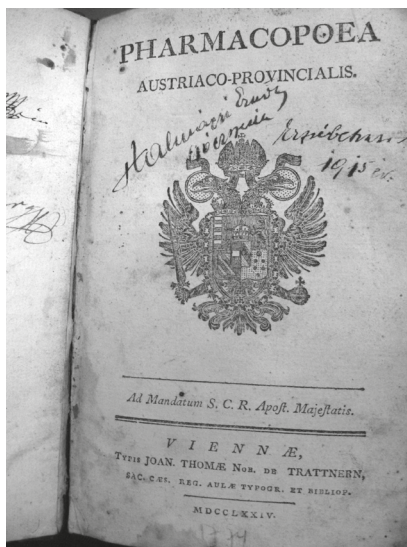 PHARMACOPOEA
AUSTRIACO-PROVINCIALIS.
1915
Ad Mandatum S. C. R. Apoſt. Majeſtatis.
VIENNÆ,
Typis JOAN. THOMÆ Nob. de TRATTNERN,
SAC. CÆS. REG. AULÆ TYPOGR. ET BIBLIOP.
MDCCLXXIV.
1774